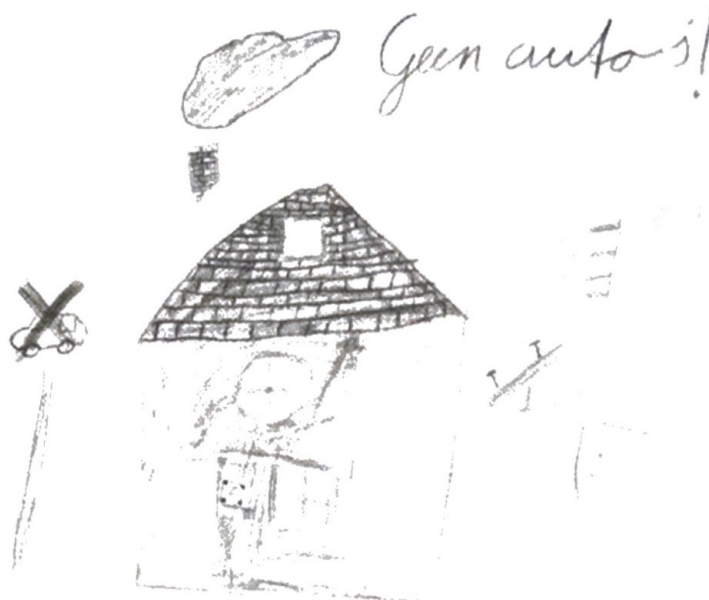 Geen auto's!